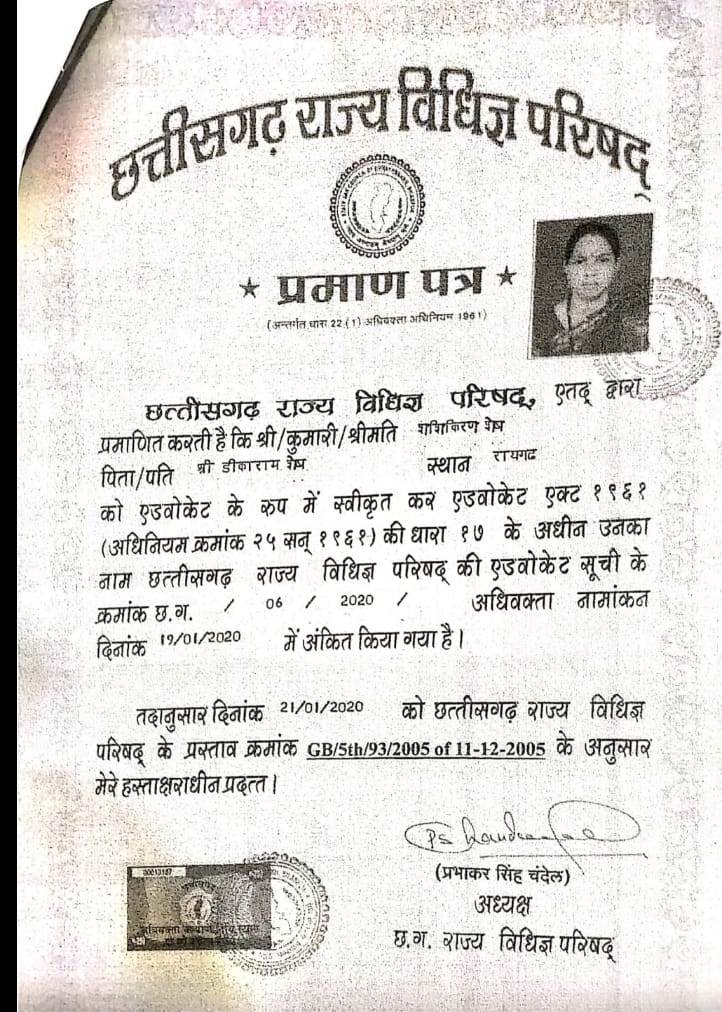 छत्तीसगढ़ राज्य विधिज्ञ परिषद्
★ प्रमाण पत्र ★
(अन्तर्गत धारा 22 (1) अधिवक्ता अधिनियम 1961)
छत्तीसगढ़ राज्य विधिज्ञ परिषद्, एतद् द्वारा
प्रमाणित करती है कि श्री/कुमारी/श्रीमति शशिकिरण शेष
पिता/पति श्री डीकाराम शेष स्थान रायगढ
को एडवोकेट के रुप में स्वीकृत कर एडवोकेट एक्ट १९६१
(अधिनियम क्रमांक २५ सन् १९६१) की धारा १७ के अधीन उनका
नाम छत्तीसगढ़ राज्य विधिज्ञ परिषद् की एडवोकेट सूची के
क्रमांक छ.ग. / 06 / 2020 / अधिवक्ता नामांकन
दिनांक 19/01/2020 में अंकित किया गया है।
तदानुसार दिनांक 21/01/2020 को छत्तीसगढ़ राज्य विधिज्ञ
परिषद् के प्रस्ताव क्रमांक GB/5th/93/2005 of 11-12-2005 के अनुसार
मेरे हस्ताक्षराधीन प्रदत्त।
(प्रभाकर सिंह चंदेल)
अध्यक्ष
छ.ग. राज्य विधिज्ञ परिषद्